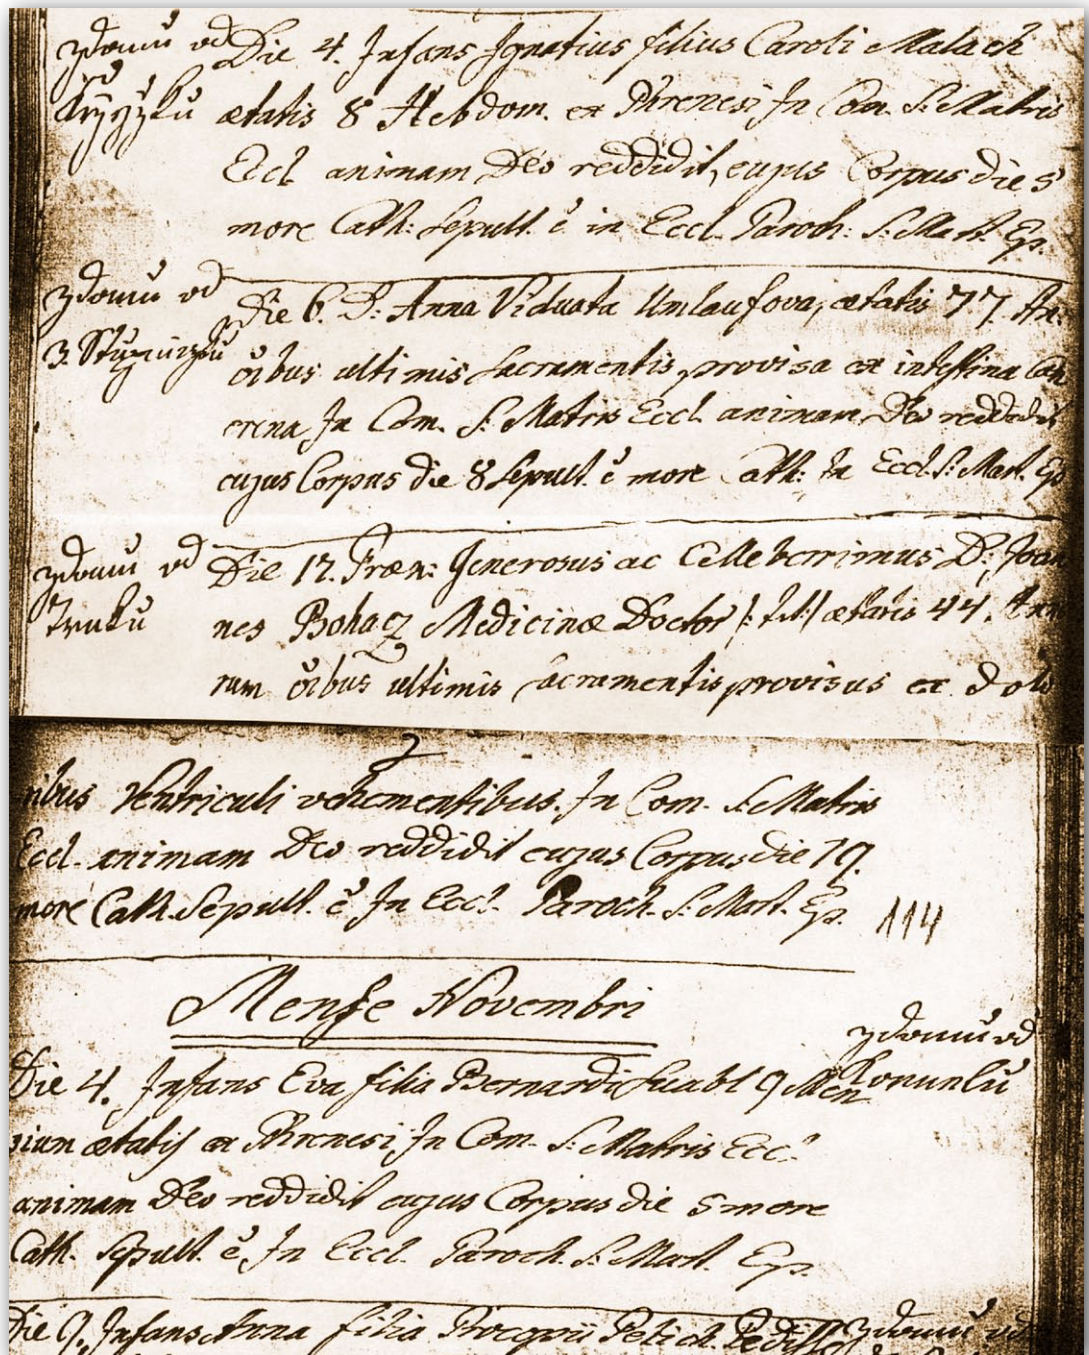 zdomu od Die 4. Infans Ignatius filius Caroli Malach
ætatis 8 Hebdom. ex Phrenesi In Com. S: Matris
Eccl animam Deo reddidit, cujus Corpus die 5
more Cath: Sepult. ẽ in Eccl. Paroch: S: Mart. Ep.
zdomu od Die 6. D: Anna Viduata Umlaufova, ætatis 77. An:
oĩbus ultimis Sacramentis provisa ex intestina
In Com. S: Matris Eccl. animam Deo reddidit
cujus Corpus die 8 Sepult. ẽ more Cath: In Eccl. S: Mart. Ep
zdomu od Die 17. Præn: Generosus ac Celleberrimus D: Joan
nes Bohacz Medicinæ Doctor ætatis 44. Ann
rum oĩbus ultimis Sacramentis provisus ex dolo
2
ribus Ventriculi vehementibus. In Com. S: Matris
Eccl. animam Deo reddidit cujus Corpus die 19.
more Cath. Sepult. ẽ In Eccl. Paroch. S: Mart. Ep. 114
Mense Novembri
zdomu od
Die 4. Infans Eva filia Bernardi 9 Men
sium ætatis ex Phrenesi, In Com. S: Matris Eccl
animam Deo reddidit cujus Corpus die 5 more
Cath. Sepult. ẽ, In Eccl. Paroch. S: Mart. Ep.
Die 9. Infans Anna filia Procopii zdomu od